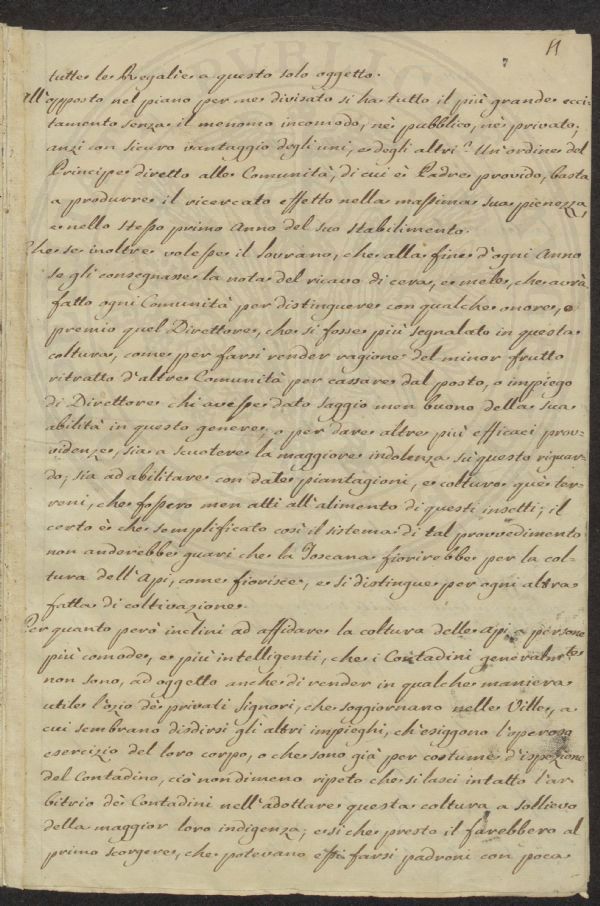 11
tutte le Regalie a questo solo oggetto.
All'opposto nel piano per me divisato si ha tutto il più grande ecci-
tamento senza il menomo incomodo, nè pubblico, nè privato;
anzi con sicuro vantaggio degli uni, e degli altri. Un'ordine del
Principe diretto alle Comunità, di cui è Padre provido, basta
a produrre il ricercato effetto nella massima sua pienezza,
e nello stesso primo Anno del suo stabilimento.
Che se inoltre volesse il Sovrano, che alla fine d'ogni Anno
se gli consegnasse la nota del ricavo di cera, e mele, che avrà
fatto ogni Comunità per distinguere con qualche onore, o
premio quel Direttore, che si fosse più segnalato in questa
coltura, come per farsi render ragione del minor frutto
ritratto d'altre Comunità per cassare dal posto, o impiego
di Direttore chi avesse dato saggio men buono della sua
abilità in questo genere; o per dare altre più efficaci prov-
videnze, sia a scuotere la maggiore indolenza su questo riguar-
do; sia ad abilitare con date piantagioni, e colture què ter-
reni, che fossero men atti all'alimento di questi insetti; il
certo è che semplificato così il sistema di tal provvedimento
non anderebbe guari che la Toscana fiorirebbe per la col-
tura dell'Api, come fiorisce, e si distingue per ogni altra
fatta di coltivazione.
Per quanto però inclini ad affidare la coltura delle Api a persone
più comode, e più intelligenti, che i Contadini generalmte
non sono, ad oggetto anche di render in qualche maniera
utile l'ozio dè privati Signori, che soggiornano nelle Ville, a
cui sembrano disdirsi gli altri impieghi, ch'esiggono l'operoso
esercizio del loro corpo, o che sono già per costume d'ispezione
del Contadino, ciò nondimeno ripeto che si lasci intatto l'ar-
bitrio dè Contadini nell'adottare questa coltura a sollievo
della maggior loro indigenza; e si che presto il farebbero al
primo scorgere, che potevano essi farsi padroni con poca